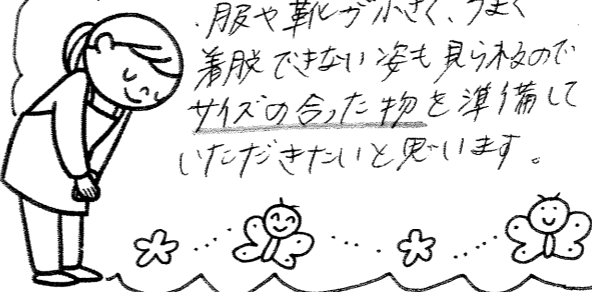 ・服や靴が小さく、うまく
着脱できない姿も見られるので
サイズの合った物を準備して
いただきたいと思います。